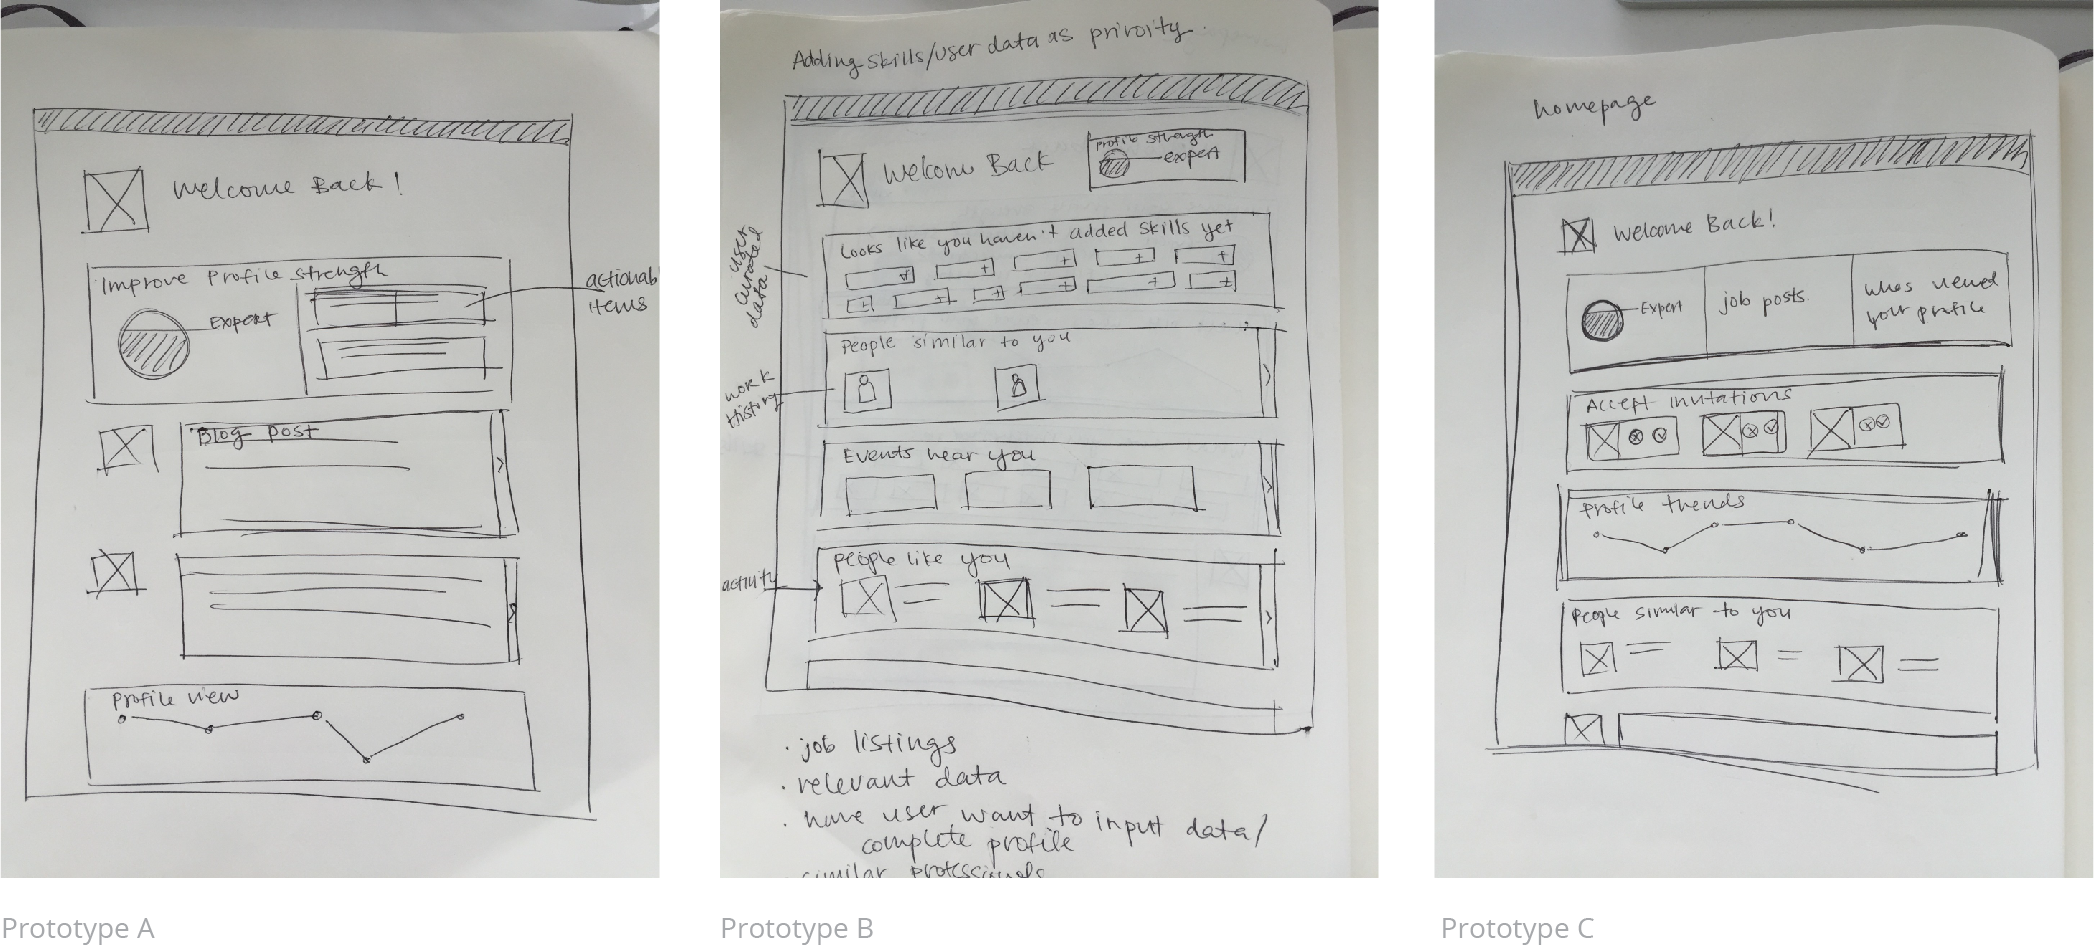 Welcome Back!
Improve Profile strength
Expert
actionab
items
Blog post
Profile view
Prototype A
Adding skills/user data as priroity.
Profile strength
expert
Welcom Back
Looks like you haven't added skills yet
user
curated
data
People similar to you
work
History
Events near you
People like you
activity
· job listings
· relevant data
· have user want to input data/
complete profile
similar professionals
Prototype B
homepage
Welcome Back!
Expert
job posts
whos viewed
your profile
Accept invitations
Profile trends
People similar to you
Prototype C